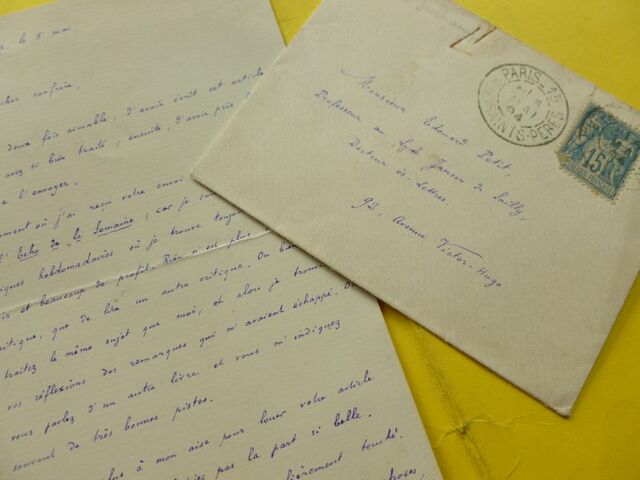 le 5 mai,
cher confrère,
deux fois aimable; d'avoir écrit cet article
avez si bien traité; ensuite, d'avoir pris
l'envoyer.
où j'ai reçu votre envoi
Echo de la Semaine; car je
hebdomadaires où je trouve
et beaucoup de profit. Rien n'est plus
critique, que de lire un autre critique. Ou bien
traitez le même sujet que moi, et alors je trouve
vos réflexions des remarques qui m'avaient échappé. Ou
vous parlez d'un autre livre et vous m'indiquez
souvent de très bonnes pistes.
plus à mon aise pour louer votre article
pas la part si belle.
touché.
choses,
Monsieur Edouard Petit,
Professeur au Lycée Janson de Sailly,
Docteur ès-Lettres
93, Avenue Victor-Hugo
PARIS-15
94
STS-PERES
15